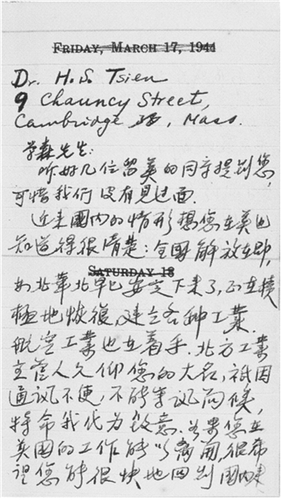 FRIDAY, MARCH 17, 1944
Dr. H. S. Tsien
9 Chauncy Street,
Cambridge 38, Mass.
学森先生:
听好几位留美的同学提到您,
可惜我们没有见过面.
近来國内的情形想您在美也
知道得很清楚:全國解放在即,
SATURDAY 18
东北華北早已安定下来了,正在積
極地恢復及建立各种工業.
航空工業也在着手.北方工業
主管人久仰您的大名,祇因
通訊不便,不能訊问候,
特命我代为致意.如果您在
美國的工作能够离開,很希
望您能很快地回到國内来